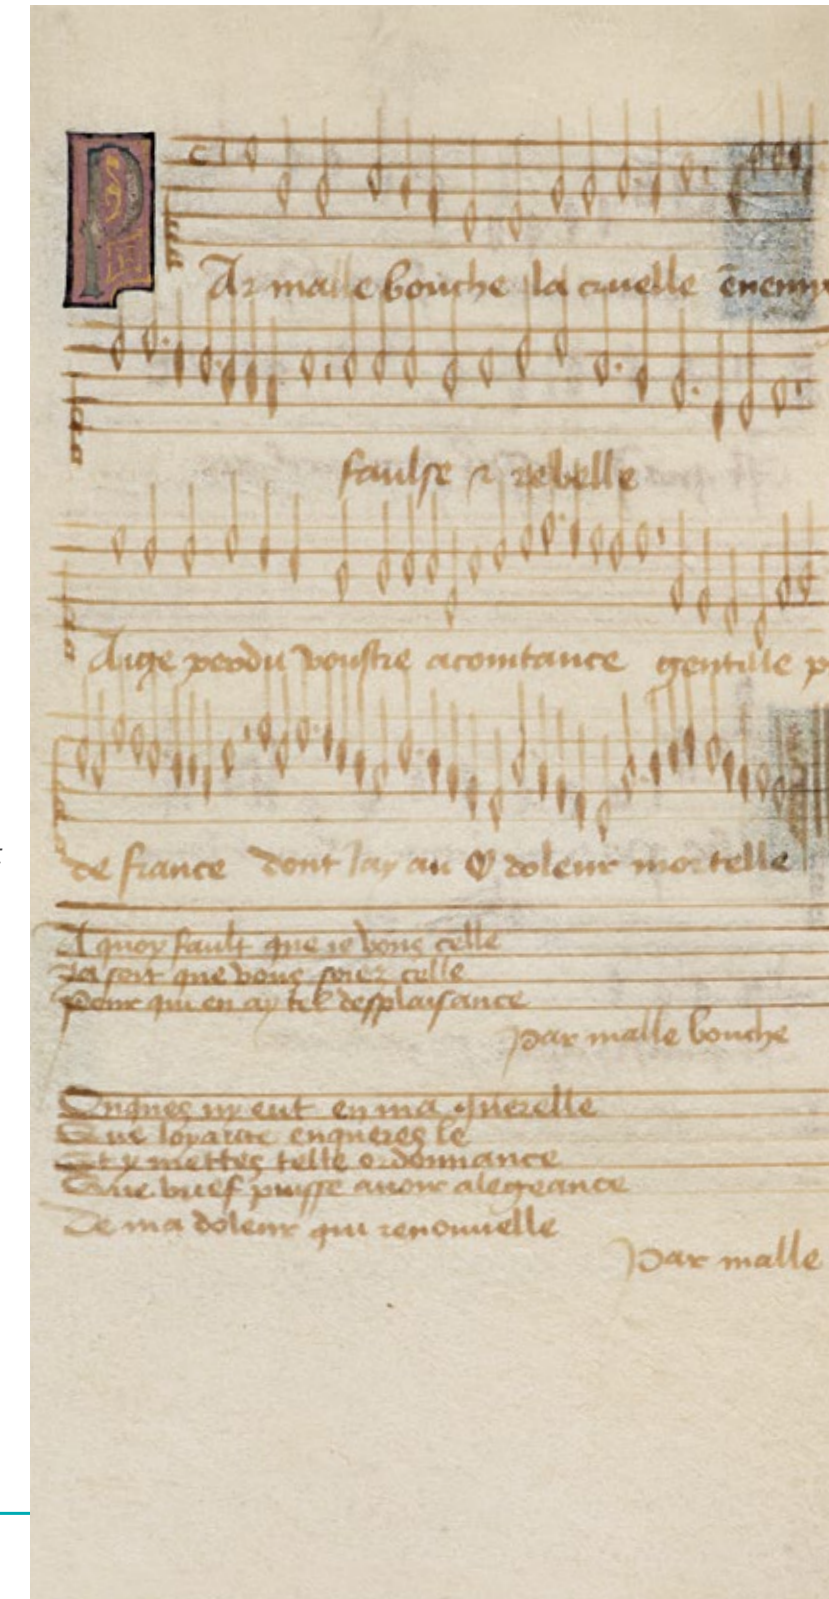 PAr malle bouche la cruelle enemy
faulse & rebelle
Aige perdu voustre acointance gentille p
de france dont Jay au O doleur mortelle
A quoy fault que ie vous celle
Ja soit que vous soiez celle
Pour qui en ay tel desplaisance
par malle bouche
Onques ny eut en ma querelle
Que loyaute enqueres le
Et y mettes telle ordonnance
Que brief puisse auoir alegeance
De ma doleur qui renouuelle
par malle